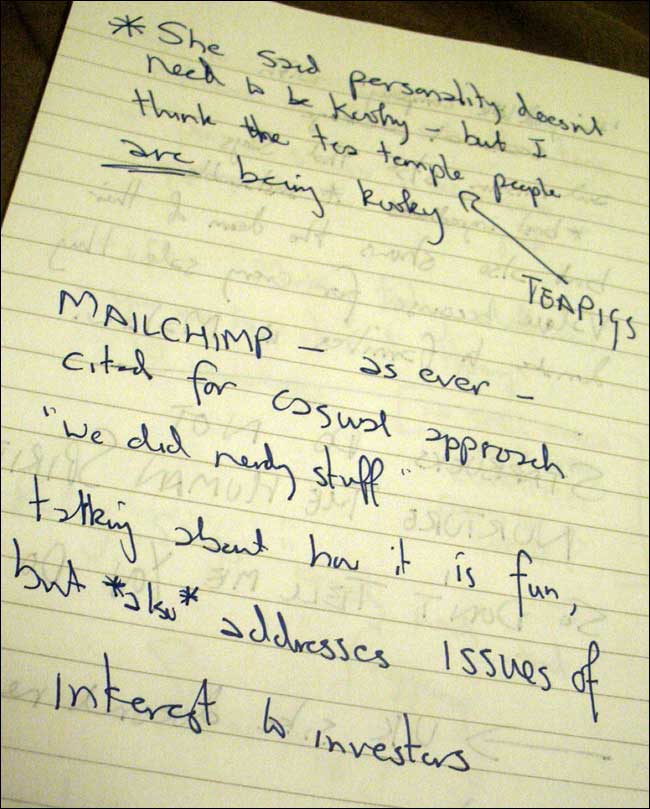 * She said personality doesn't
need to be kooky - but I
think the tea temple people
are being kooky
TEAPIGS
MAILCHIMP - as ever -
cited for casual approach
"we did nerdy stuff"
talking about how it is fun,
but *also* addresses issues of
interest to investors